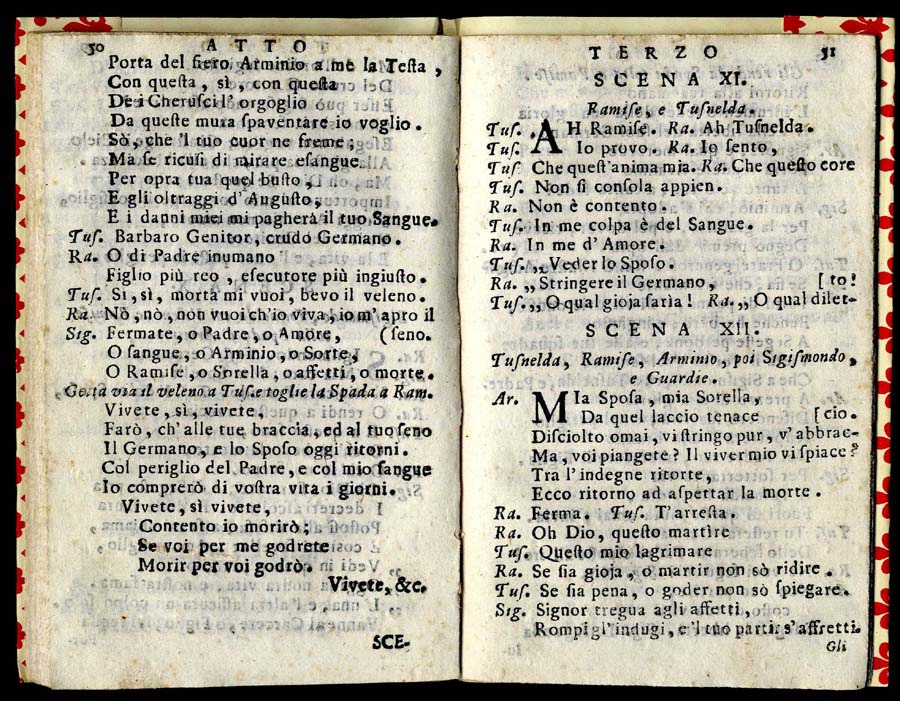 50 ATTO
Porta del fiero Arminio a me la Testa,
Con questa, sì, con questa
De i Cherusci l' orgoglio
Da queste mura spaventare io voglio.
Sò, che 'l tuo cuor ne freme;
Ma se ricusi di mirare esangue
Per opra tua quel busto,
E gli oltraggi d' Augusto,
E i danni miei mi pagherà il tuo Sangue.
Tuſ. Barbaro Genitor, crudo Germano.
Ra. O di Padre inumano
Figlio più reo, esecutore più ingiusto.
Tuſ. Sì, sì, morta mi vuoi, bevo il veleno.
Ra. Nò, nò, non vuoi ch'io viva, io m' apro il
Sig. Fermate, o Padre, o Amore, (seno.
O sangue, o Arminio, o Sorte,
O Ramise, o Sorella, o affetti, o morte.
Getta via il veleno a Tuſ. e toglie la Spada a Ram.
Vivete, sì, vivete,
Farò, ch' alle tue braccia, ed al tuo seno
Il Germano, e lo Sposo oggi ritorni.
Col periglio del Padre, e col mio sangue
Io comprerò di vostra vita i giorni.
Vivete, sì vivete,
Contento io morirò;
Se voi per me godrete
Morir per voi godrò.
Vivete, &c.
SCE-
TERZO 51
SCENA XI.
Ramise, e Tusnelda.
Tuſ. AH Ramise. Ra. Ah Tusnelda.
Tuſ. Io provo. Ra. Io sento,
Tuſ Che quest'anima mia. Ra. Che questo core
Tuſ. Non si consola appien.
Ra. Non è contento.
Tuſ. In me colpa è del Sangue.
Ra. In me d' Amore.
Tuſ. „ Veder lo Sposo.
Ra. „ Stringere il Germano, [to!
Tuſ. „ O qual gioja sarìa! Ra. „ O qual dilet-
SCENA XII.
Tusnelda, Ramise, Arminio, poi Sigismondo,
e Guardie.
Ar. MIa Sposa, mia Sorella,
Da quel laccio tenace [cio.
Disciolto omai, vi stringo pur, v' abbrac-
Ma, voi piangete? Il viver mio vi spiace?
Tra l' indegne ritorte,
Ecco ritorno ad aspettar la morte.
Ra. Ferma. Tuſ. T' arresta.
Ra. Oh Dio, questo martìre
Tuſ. Questo mio lagrimare
Ra. Se sia gioja, o martir non sò ridire.
Tuſ. Se sia pena, o goder non sò spiegare.
Sig. Signor tregua agli affetti,
Rompi gl' indugi, e 'l tuo partir s' affretti.
Gli